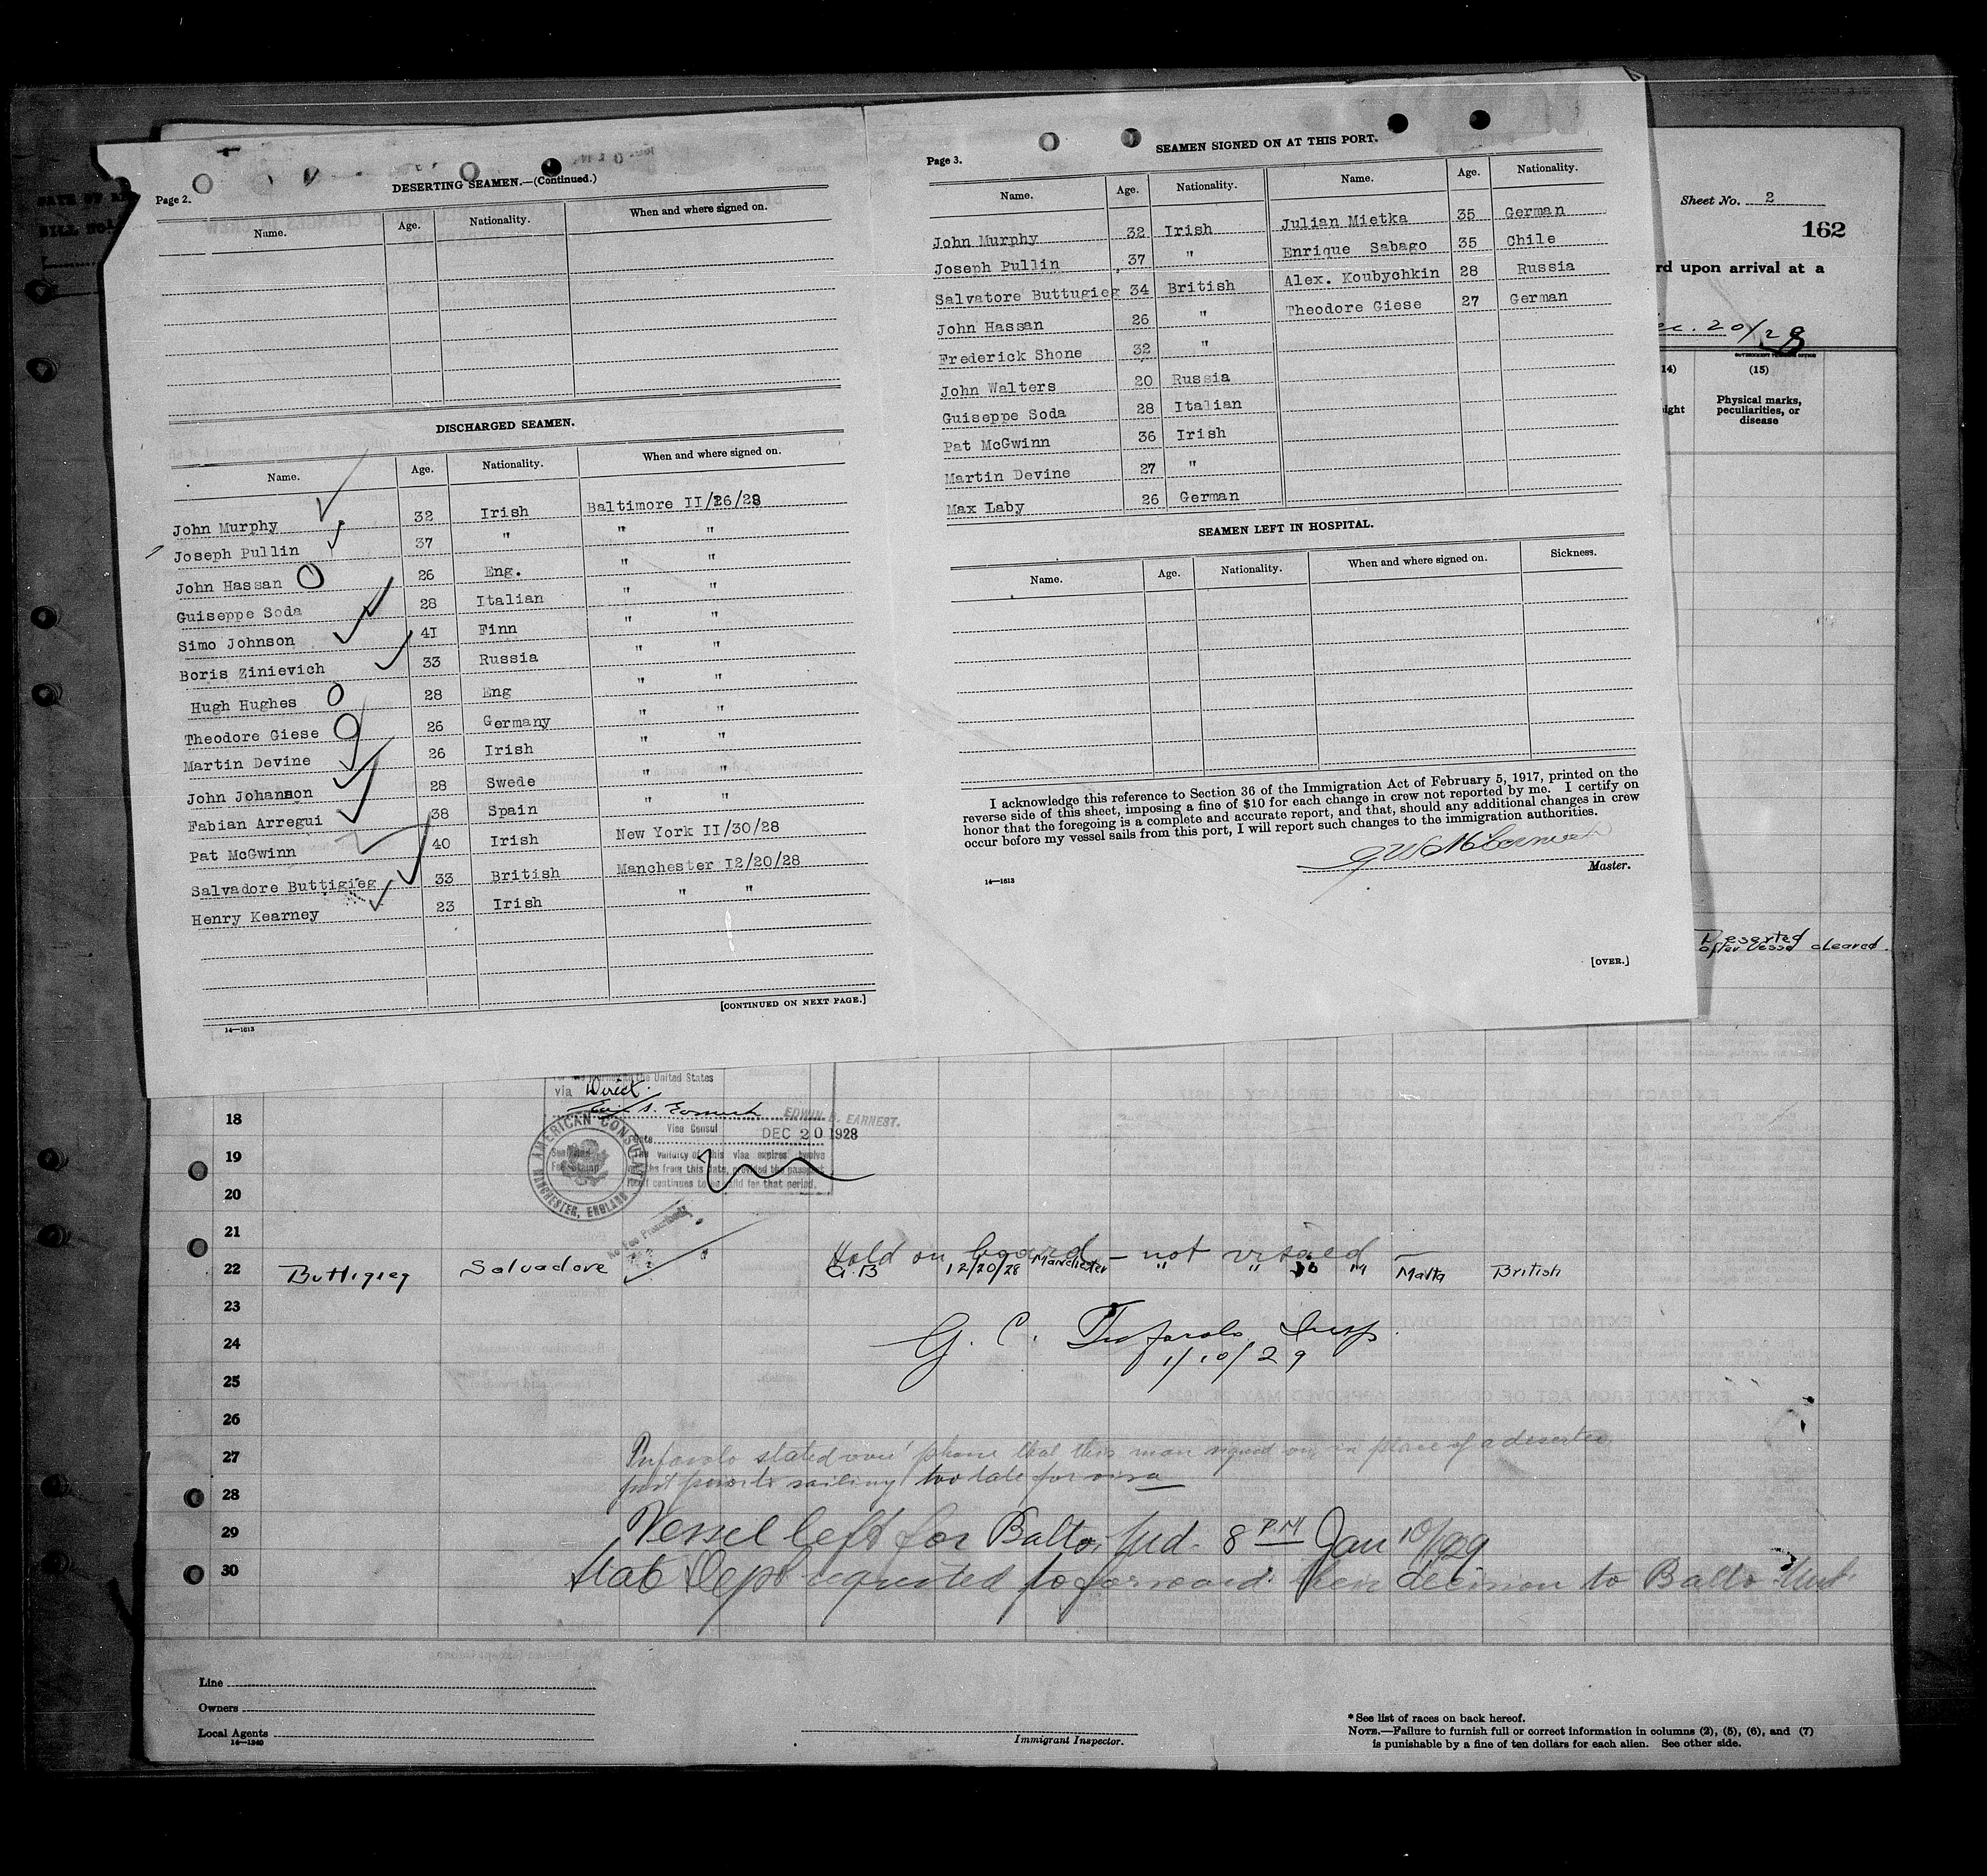 Page 2.
DESERTING SEAMEN.—(Continued.)
Name. Age. Nationality. When and where signed on.
DISCHARGED SEAMEN.
Name. Age. Nationality. When and where signed on.
John Murphy 32 Irish Baltimore II/26/28
Joseph Pullin 37 " " "
John Hassan 26 Eng. " "
Guiseppe Soda 28 Italian " "
Simo Johnson 4I Finn " "
Boris Zinievich 33 Russia " "
Hugh Hughes 28 Eng " "
Theodore Giese 26 Germany " "
Martin Devine 26 Irish " "
John Johanson 28 Swede " "
Fabian Arregui 38 Spain " "
Pat McGwinn 40 Irish New York II/30/28
Salvadore Buttigieg 33 British Manchester I2/20/28
Henry Kearney 23 Irish " "
[CONTINUED ON NEXT PAGE.]
14—1613
Page 3.
SEAMEN SIGNED ON AT THIS PORT.
Name. Age. Nationality. Name. Age. Nationality.
John Murphy 32 Irish Julian Mietka 35 German
Joseph Pullin 37 " Enrique Sabago 35 Chile
Salvatore Buttugieg 34 British Alex. Koubychkin 28 Russia
John Hassan 26 " Theodore Giese 27 German
Frederick Shone 32 "
John Walters 20 Russia
Guiseppe Soda 28 Italian
Pat McGwinn 36 Irish
Martin Devine 27 "
Max Laby 26 German
SEAMEN LEFT IN HOSPITAL.
Name. Age. Nationality. When and where signed on. Sickness.
I acknowledge this reference to Section 36 of the Immigration Act of February 5, 1917, printed on the
reverse side of this sheet, imposing a fine of $10 for each change in crew not reported by me. I certify on
honor that the foregoing is a complete and accurate report, and that, should any additional changes in crew
occur before my vessel sails from this port, I will report such changes to the immigration authorities.
Master.
14—1613
[OVER.]
Sheet No. 2
162
rd upon arrival at a
ec. 20/28
14) (15)
ight Physical marks, peculiarities, or disease
Deserted
after vessel cleared
the United States
via Direct.
EDWIN B. EARNEST.
Vice Consul
DEC 20 1928
The validity of this visa expires twelve
months from this date, provided the passport
itself continues to be valid for that period.
AMERICAN CONSULATE
MANCHESTER, ENGLAND
No Fee Prescribed
18
19
20
21
Hold on board — not visaed —
22 Buttigieg Salvadore G.B 12/20/28 Manchester " " 36 M Malta British
23
24
G. C. Insp.
1/10/29
25
26
27
stated over phone that this man signed on in place of a deserter
28
just prior to sailing too late for visa
29
Vessel left for Balto, Md. 8 PM Jan 10/1929
30
Dept requested to forward their decision to Balto
Line
Owners
Local Agents
14—1240
Immigrant Inspector.
* See list of races on back hereof.
NOTE.—Failure to furnish full or correct information in columns (2), (5), (6), and (7)
is punishable by a fine of ten dollars for each alien. See other side.